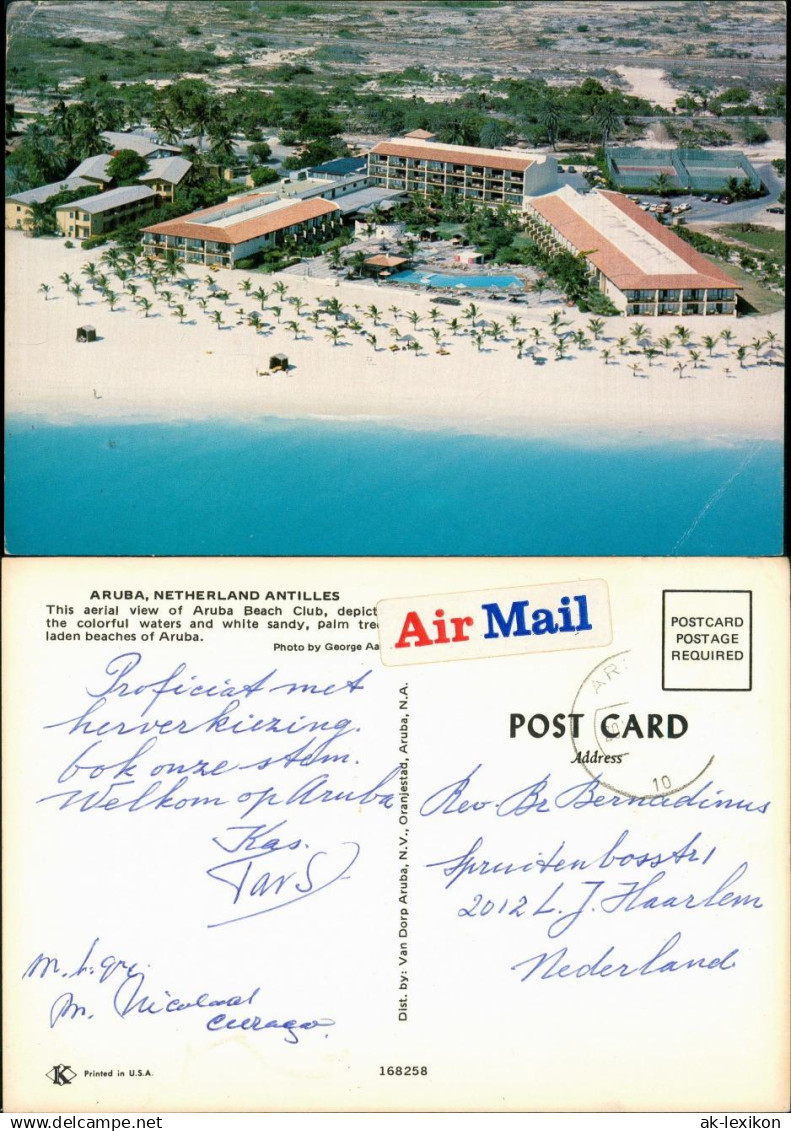 ARUBA, NETHERLAND ANTILLES
This aerial view of Aruba Beach Club, depict
the colorful waters and white sandy, palm tre
laden beaches of Aruba.
Photo by George Aa
Air Mail
POSTCARD
POSTAGE
REQUIRED
AR
10
POST CARD
Address
Proficiat met
herverkiezing.
Ook onze stem.
Welkom op Aruba
Kas.
Rev. Br Bernadinus
Spruitenbosstr 1
2012 L. J. Haarlem
Nederland
m. h. gr.
m. Nicolaas
Curaçao
Dist. by: Van Dorp Aruba, N.V., Oranjestad, Aruba, N.A.
K Printed in U.S.A.
168258
www.ansichtskarten-lexikon.de
ak-lexikon